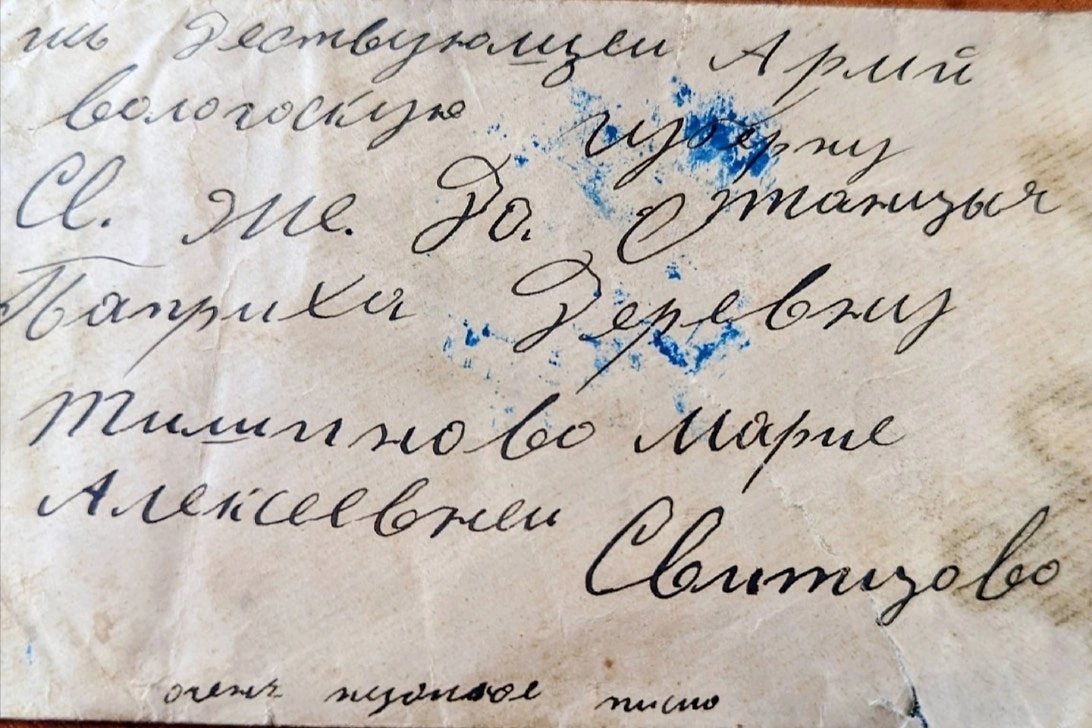 из Дествующеи Армй
вологоскую губерну
Сл. Же. До. Станцыя
Паприха Деревну
Тилипново Марие
Алексеевнеи
Свитцово
очень нужное писмо